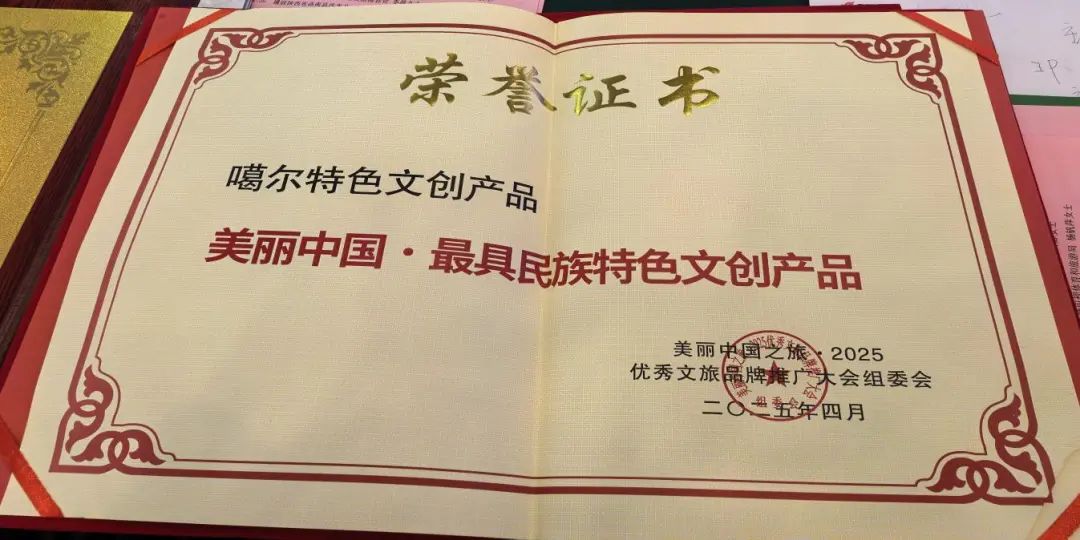 荣誉证书
噶尔特色文创产品
美丽中国·最具民族特色文创产品
美丽中国之旅·2025
优秀文旅品牌推广大会组委会
二〇二五年四月
组委会